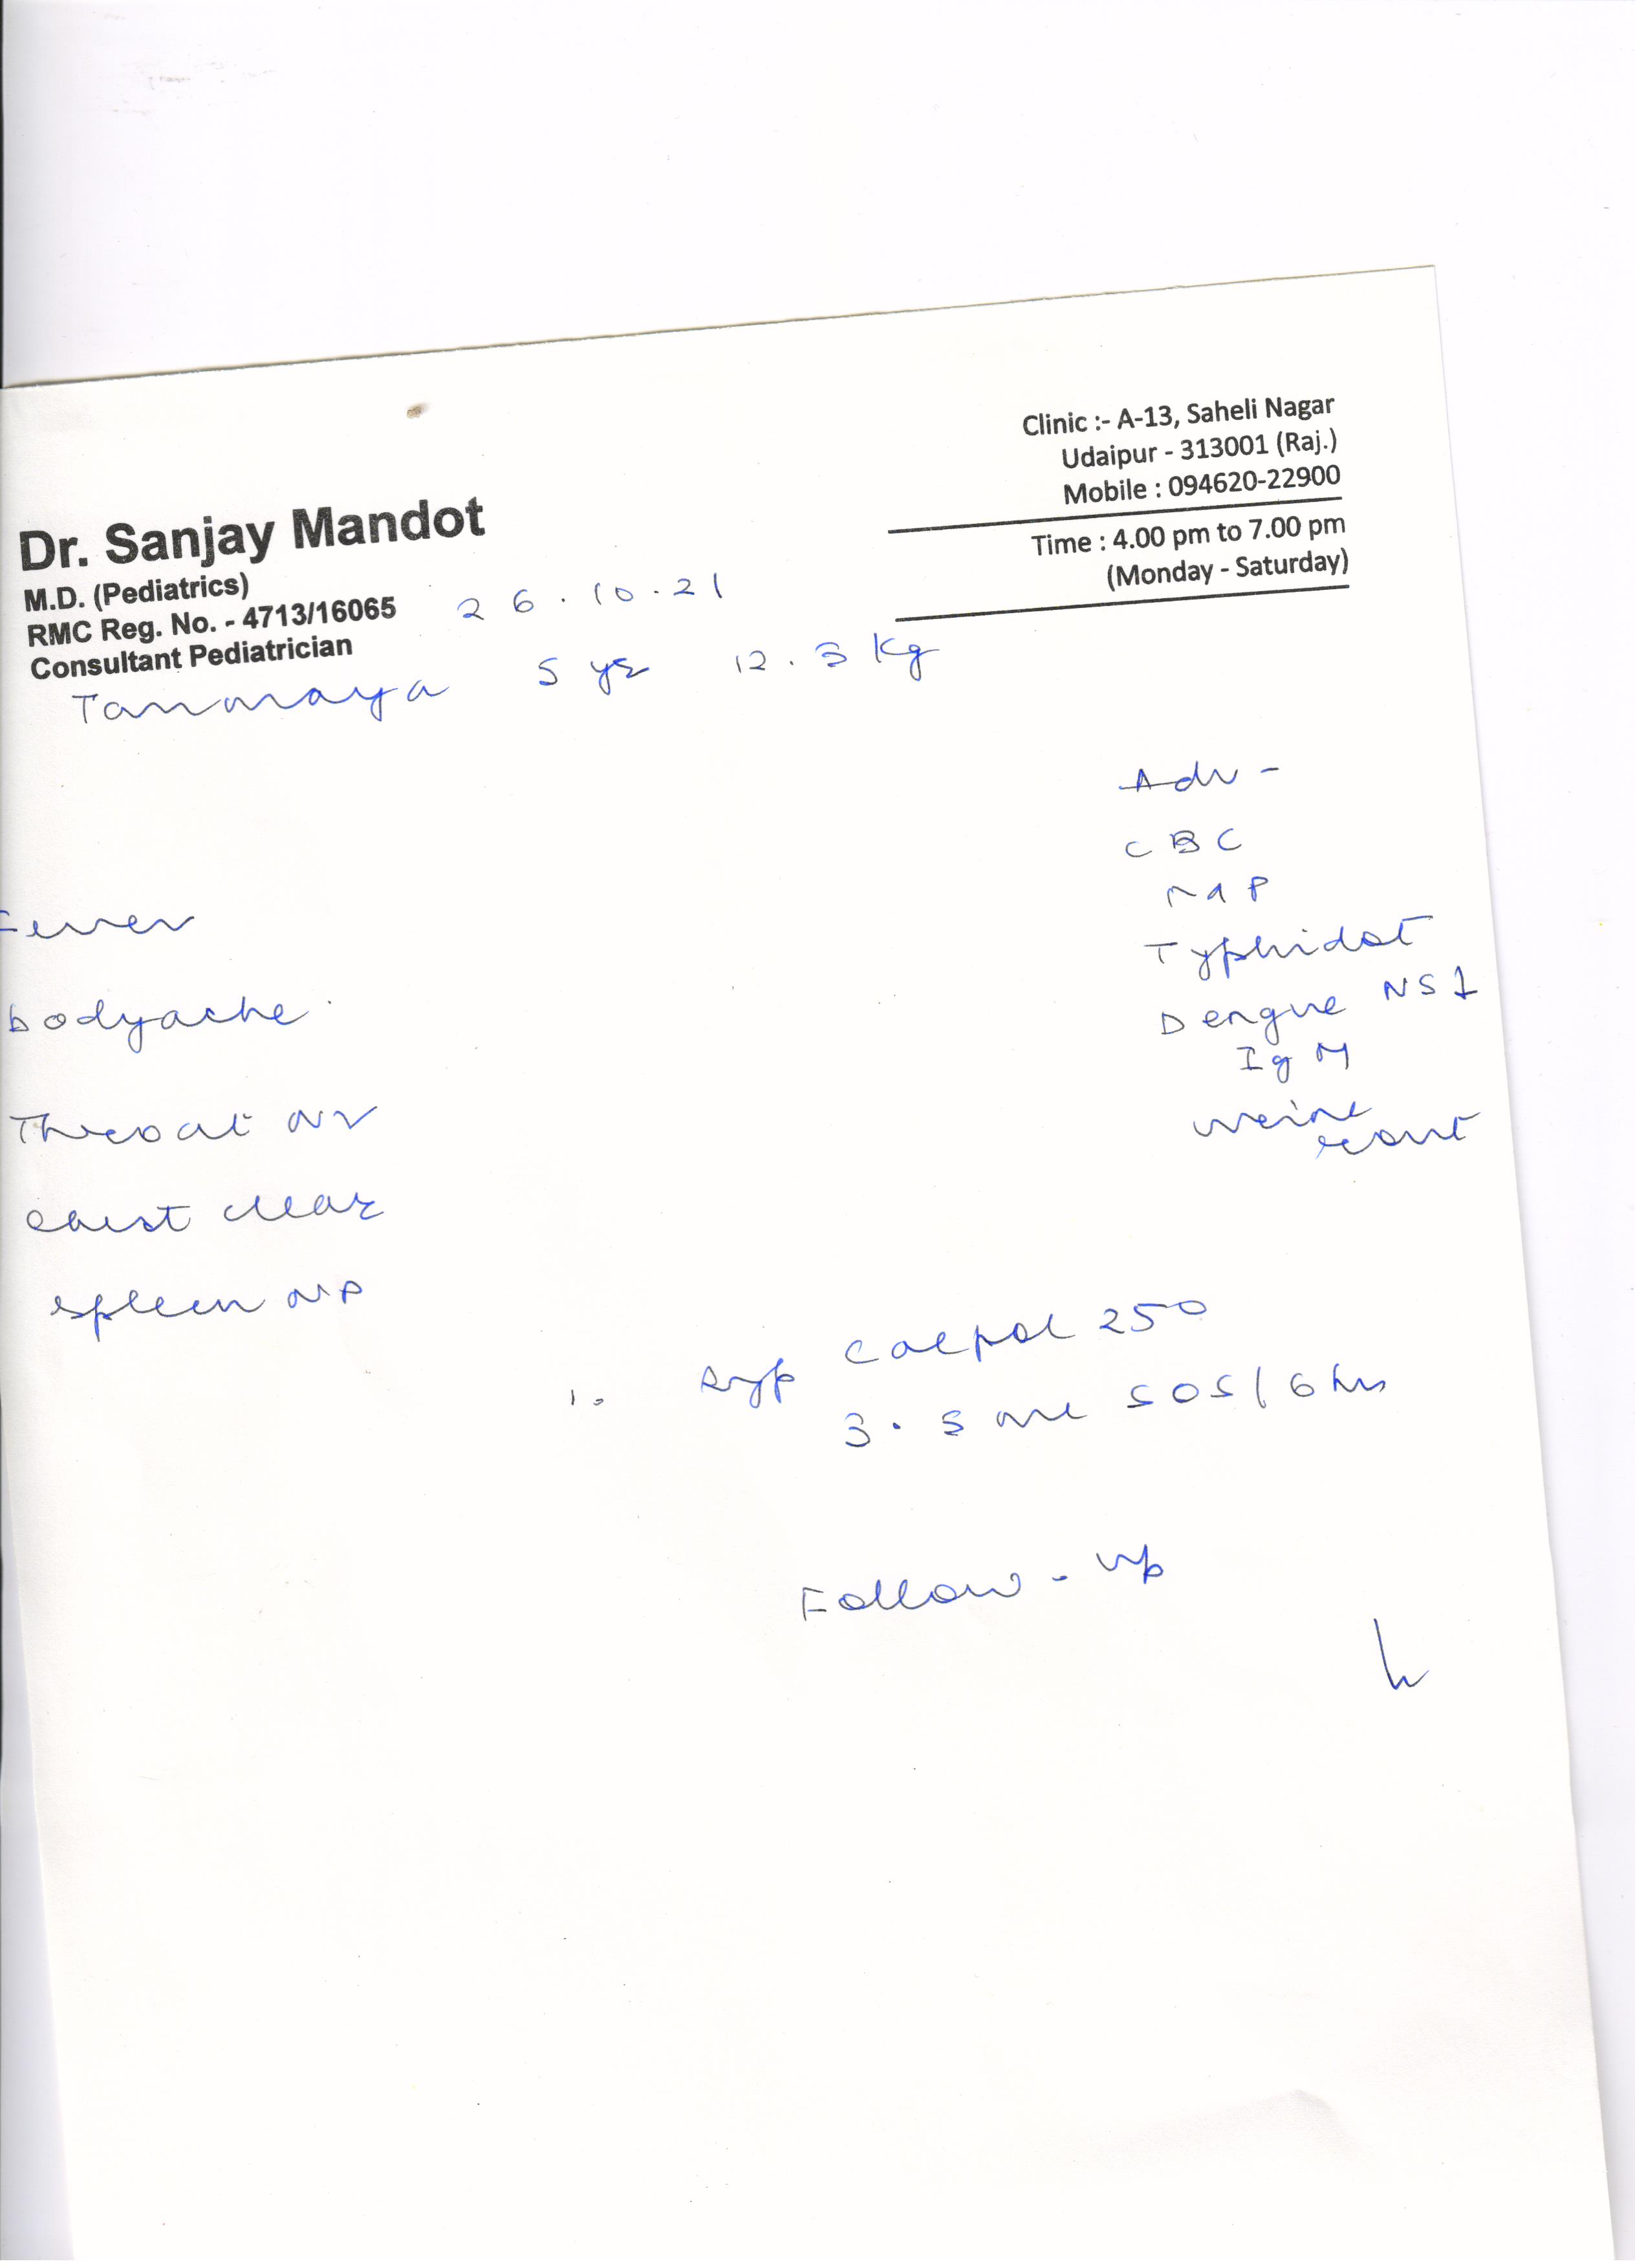 Clinic :- A-13, Saheli Nagar
Udaipur - 313001 (Raj.)
Mobile : 094620-22900
Time : 4.00 pm to 7.00 pm
(Monday - Saturday)
Dr. Sanjay Mandot
M.D. (Pediatrics)
RMC Reg. No. - 4713/16065
Consultant Pediatrician
26.10.21
Tanmaya 5 yr 12.3 Kg
Adv -
CBC
MP
Typhidot
Dengue NS1
IgM
urine
rout
Fever
bodyache
Throat
chest clear
spleen NP
1. syp calpol 250
3.5 ml SOS/6 hrs
Follow-up